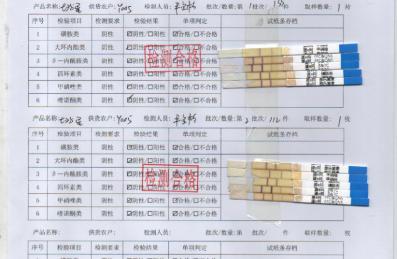 产品名称: 供货农户: Y005 检测人员: 批次/数量:第 1批次/ 150件 取样数量: 1 枚
序号 检验项目 检测要求 检验结果 单项判定 试纸条存档
1 磺胺类 阴性 ☑阴性/☐阳性 ☑合格/☐不合格
2 大环内酯类 阴性 ☑阴性/☐阳性 ☑合格/☐不合格
3 β一内酰胺类 阴性 ☑阴性/☐阳性 ☑合格/☐不合格
4 四环素类 阴性 ☑阴性/☐阳性 ☑合格/☐不合格
5 甲硝唑类 阴性 ☑阴性/☐阳性 ☑合格/☐不合格
6 喹诺酮类 阴性 ☑阴性/☐阳性 ☑合格/☐不合格
检测合格
产品名称: 供货农户: Y005 检测人员: 批次/数量:第 2 批次/ 112 件 取样数量: 1 枚
序号 检验项目 检测要求 检验结果 单项判定 试纸条存档
1 磺胺类 阴性 ☑阴性/☐阳性 ☑合格/☐不合格
2 大环内酯类 阴性 ☑阴性/☐阳性 ☑合格/☐不合格
3 β一内酰胺类 阴性 ☑阴性/☐阳性 ☑合格/☐不合格
4 四环素类 阴性 ☑阴性/☐阳性 ☑合格/☐不合格
5 甲硝唑类 阴性 ☑阴性/☐阳性 ☑合格/☐不合格
6 喹诺酮类 阴性 ☑阴性/☐阳性 ☑合格/☐不合格
检测合格
产品名称: 供货农户: 检测人员: 批次/数量:第 批次/ 件 取样数量: 枚
序号 检验项目 检测要求 检验结果 单项判定 试纸条存档